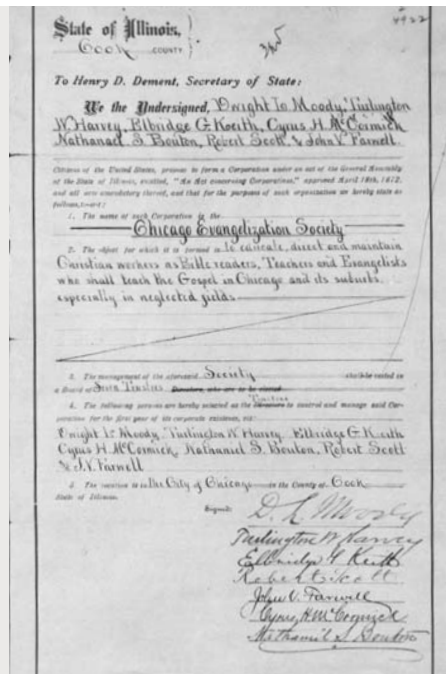 4922
State of Illinois,
Cook COUNTY
To Henry D. Dement, Secretary of State:
We the Undersigned, Dwight L. Moody, Turlington
W. Harvey, Elbridge G. Keith, Cyrus H. McCormick
Nathanael S. Bouton, Robert Scott, & John V. Farwell
Citizens of the United States, propose to form a Corporation under an act of the General Assembly
of the State of Illinois, entitled, "An Act concerning Corporations," approved April 18th, 1872,
and all acts amendatory thereof, and that for the purposes of such organization we hereby state as
follows, to-wit:
1. The name of such Corporation is the
Chicago Evangelization Society
2. The object for which it is formed is to educate, direct and maintain
Christian workers as Bible readers, Teachers and Evangelists
who shall teach the Gospel in Chicago and its suburbs,
especially in neglected fields
3. The management of the aforesaid Society shall be vested in
a Board of Seven Trustees Directors, who are to be elected
Trustees
4. The following persons are hereby selected as the Directors to control and manage said Cor-
poration for the first year of its corporate existence, viz:
Dwight L. Moody, Turlington W. Harvey, Elbridge G. Keith
Cyrus H. McCormick, Nathaniel S. Bouton, Robert Scott
& J. V. Farwell
5. The location is in the City of Chicago in the County of Cook
State of Illinois.
Signed:
D. L. Moody
Turlington W Harvey
Elbridge G Keith
Robert Scott
John V. Farwell
Cyrus H McCormick
Nathaniel S Bouton